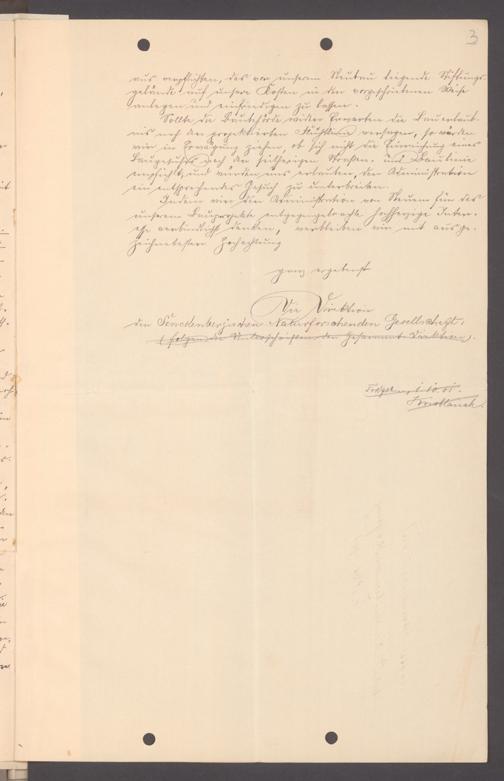 3
uns verpflichten, das vor unserem Neubau liegende Stiftungs-
gelände auf unsere Kosten in der vorgeschriebenen Weise
anlegen und einfriedigen zu lassen.
Sollte die Baubehörde wider Erwarten die Bauerlaub-
nis nach der projektierten Fluchtlinie versagen, so würden
wir in Erwägung ziehen, ob sich nicht die Einreichung eines
Baugesuchs nach der seitherigen Straßen- und Baulinie
empfiehlt, und würden uns erlauben, der Administration
ein entsprechendes Gesuch zu unterbreiten.
Indem wir der Administration von Neuem für das
unserem Bauprojekte entgegengebrachte hochherzige Inter-
esse verbindlichst danken, verbleiben wir mit ausge-
zeichnetster Hochachtung
ganz ergebenst
Die Direktion
der Senckenbergischen Naturforschenden Gesellschaft.
(folgen die Unterschriften der Gesammt Direktion).